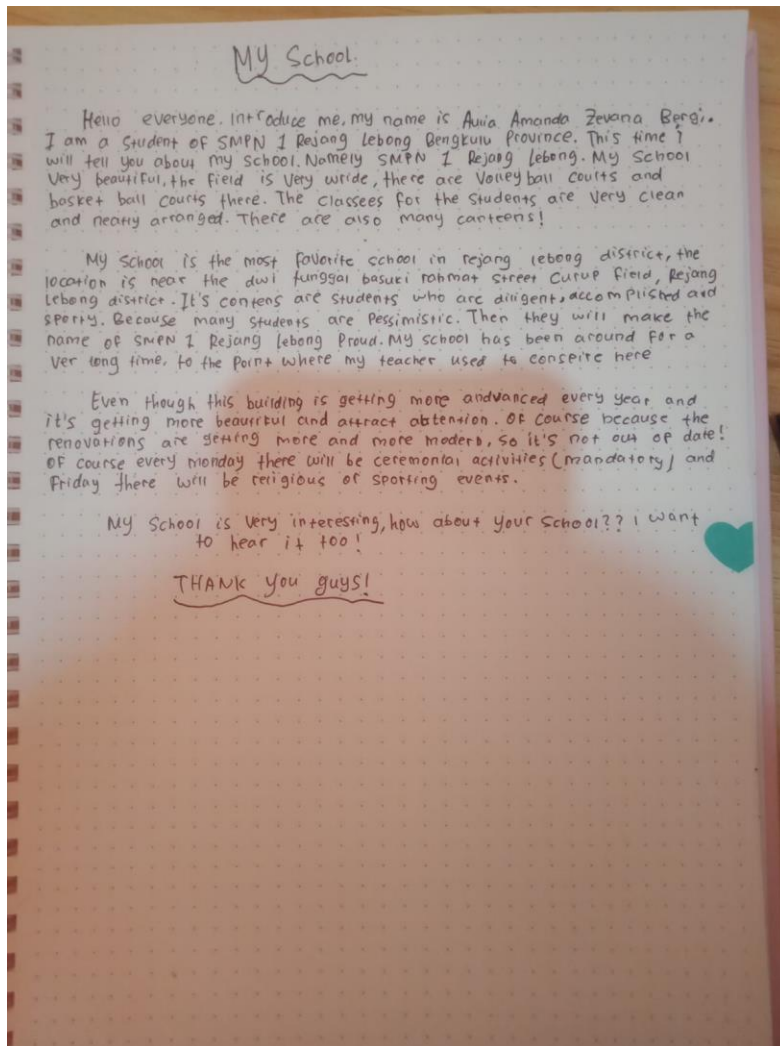 My School.
Hello everyone. Introduce me, my name is Auia Amanda Zevana Bergi.
I am a student of SMPN 1 Rejang Lebong Bengkulu Province. This time i
will tell you about my school. Namely SMPN 1 Rejang Lebong. My School
Very beautiful, the field is very wride, there are Volleyball courts and
basket ball courts there. The classees for the students are very clean
and neatly arranged. There are also many canteens!
My School is the most favorite school in rejang lebong district, the
location is near the dwi tunggal basuki rahmat street Curup field, Rejang
Lebong district. It's contens are students who are diligent, accomplished and
sporty. Because many students are Pessimistic. Then they will make the
name of SMPN 1 Rejang Lebong Proud. My school has been around for a
Ver long time, to the Point where my teacher used to conspire here
Even though this building is getting more andvanced every year and
it's getting more beautiful and attract abtention. Of course because the
renovations are getting more and more modern, so it's not out of date!
Of course every monday there will be ceremonial activities (mandatory) and
Friday there will be religious or sporting events.
My School is Very interesting, how about your School?? i want
to hear it too!
THANK you guys!